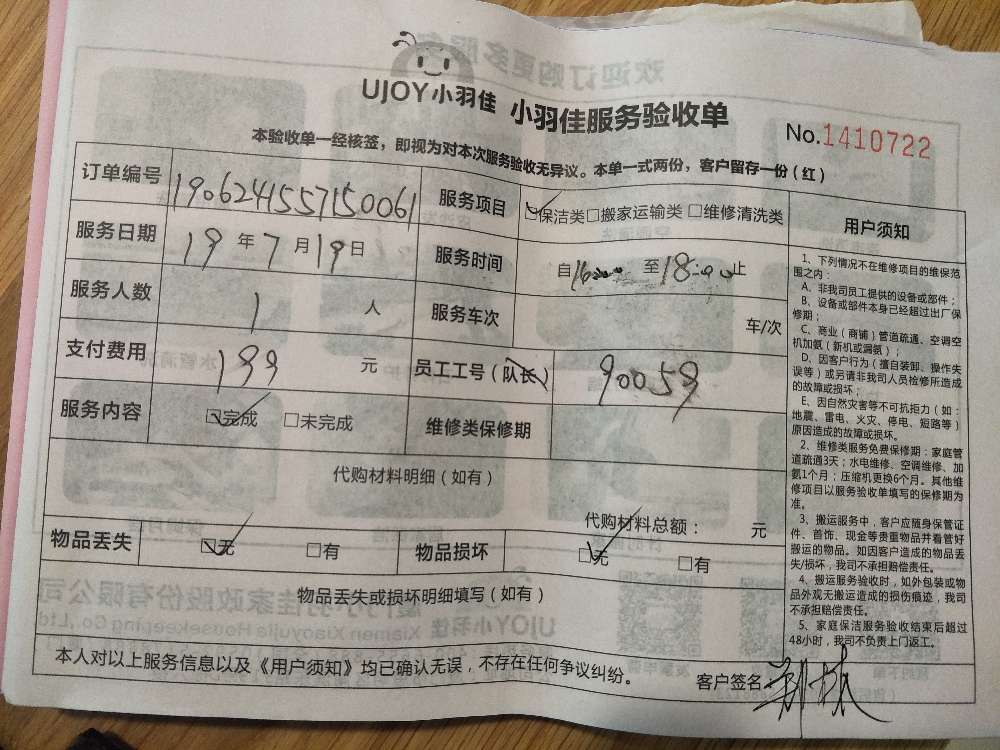 UJOY小羽佳 小羽佳服务验收单
No.1410722
本验收单一经核签，即视为对本次服务验收无异议。本单一式两份，客户留存一份（红）
订单编号 1906241557150061 服务项目 保洁类 □搬家运输类 □维修清洗类
服务日期 19年7月19日 服务时间 自16:00至18:00止
服务人数 1人 服务车次 车/次
支付费用 199元 员工工号（队长） 90059
服务内容 完成 □未完成 维修类保修期
代购材料明细（如有）
代购材料总额： 元
物品丢失 无 □有 物品损坏 无 □有
物品丢失或损坏明细填写（如有）
本人对以上服务信息以及《用户须知》均已确认无误，不存在任何争议纠纷。
客户签名：
用户须知
1、下列情况不在维修项目的维保范
围之内：
A、非我司员工提供的设备或部件；
B、设备或部件本身已经超过出厂保
修期；
C、商业（商铺）管道疏通、空调空
机加氨（新机或漏氨）；
D、因客户行为（擅自装卸、操作失
误等）或另请非我司人员检修所造成
的故障或损坏；
E、因自然灾害等不可抗拒力（如：
地震、雷电、火灾、停电、短路等）
原因造成的故障或损坏。
2、维修类服务免费保修期：家庭管
道疏通3天；水电维修、空调维修、加
氨1个月；压缩机更换6个月。其他维
修项目以服务验收单填写的保修期为
准。
3、搬运服务中，客户应随身保管证
件、首饰、现金等贵重物品并看管好
搬运的物品。如因客户造成的物品丢
失/损坏，我司不承担赔偿责任。
4、搬运服务验收时，如外包装或物
品外观无搬运造成的损伤痕迹，我司
不承担赔偿责任。
5、家庭保洁服务验收结束后超过
48小时，我司不负责上门返工。